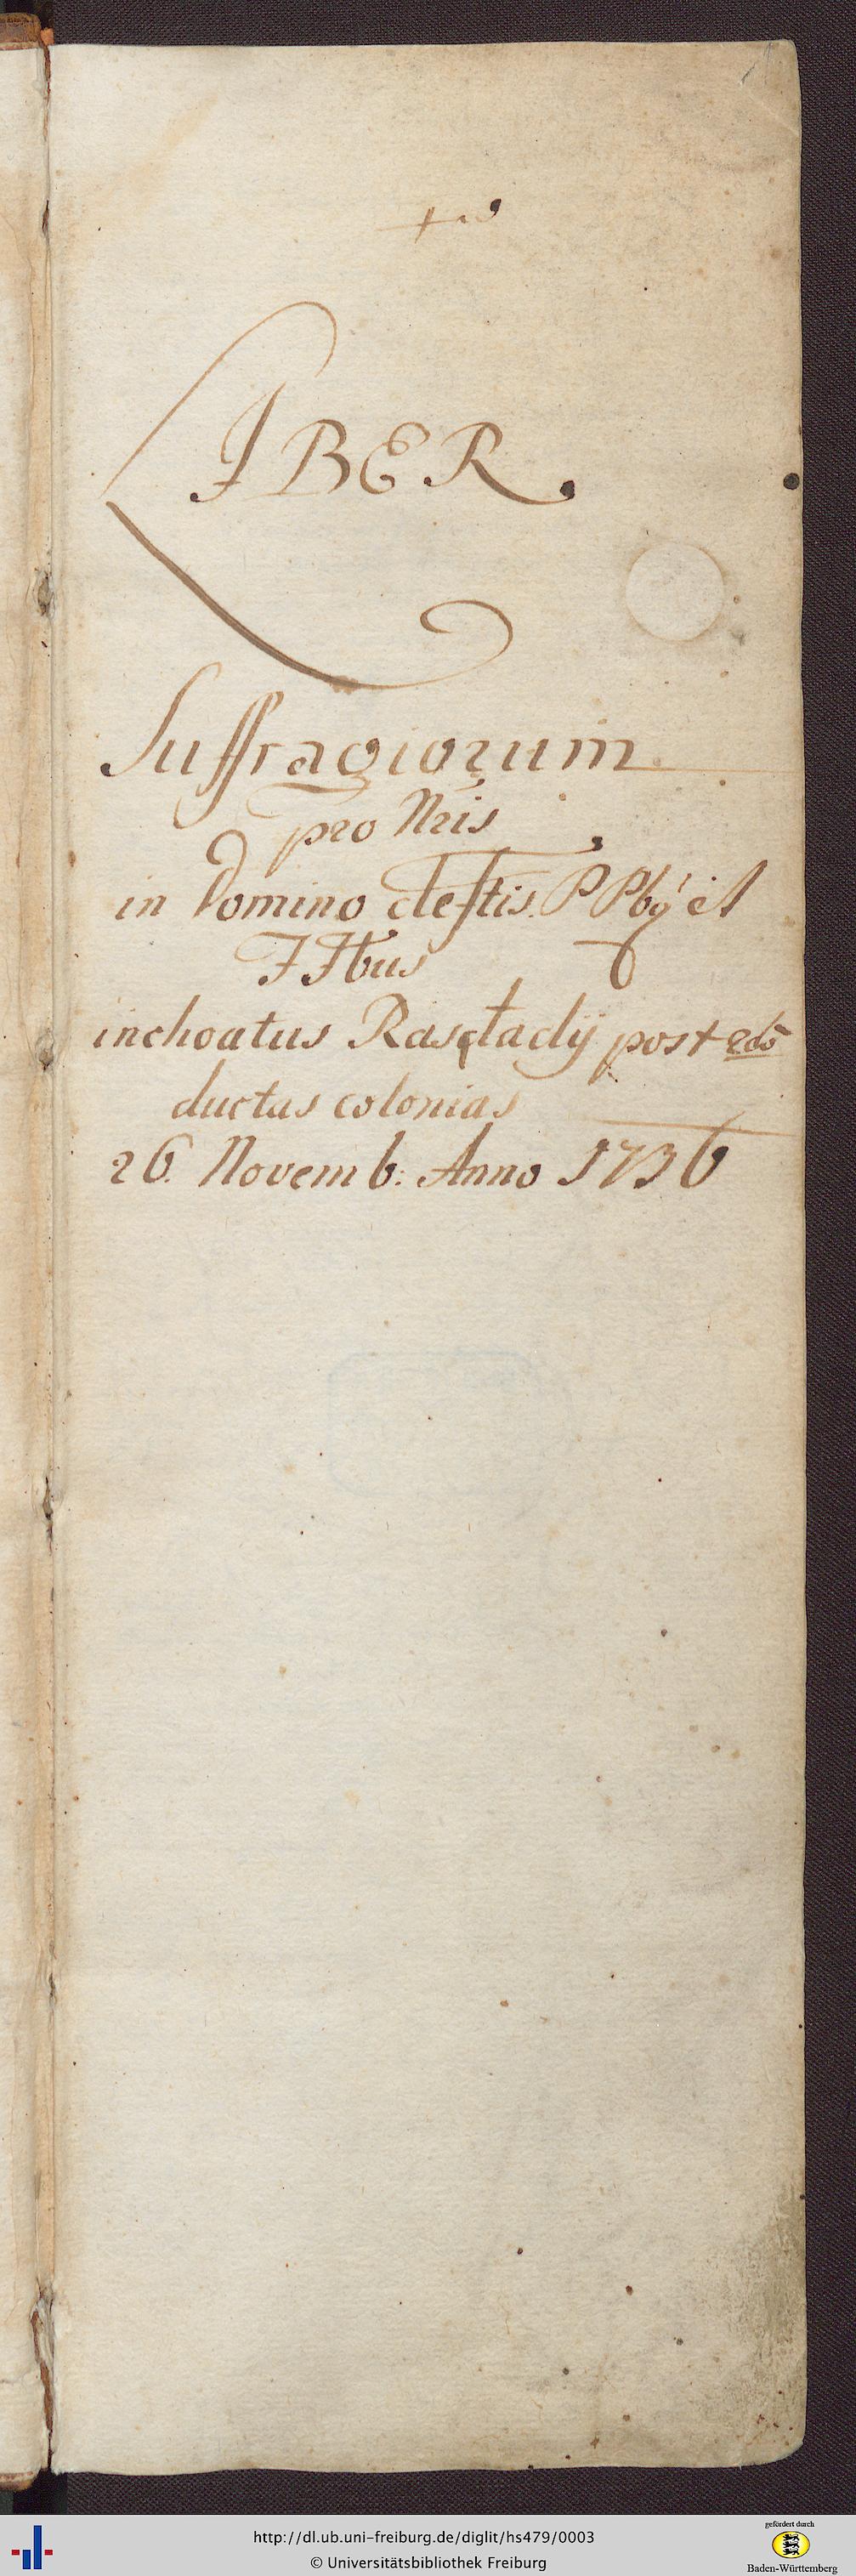 LIBER.
Suffragiorum
pro Nris
in Domino deftis. PPbg et
FFbus
inchoatus Rastadij post edo
ductas colonias
26. Novemb: Anno 1736
http://dl.ub.uni-freiburg.de/diglit/hs479/0003
© Universitätsbibliothek Freiburg
gefördert durch
Baden-Württemberg